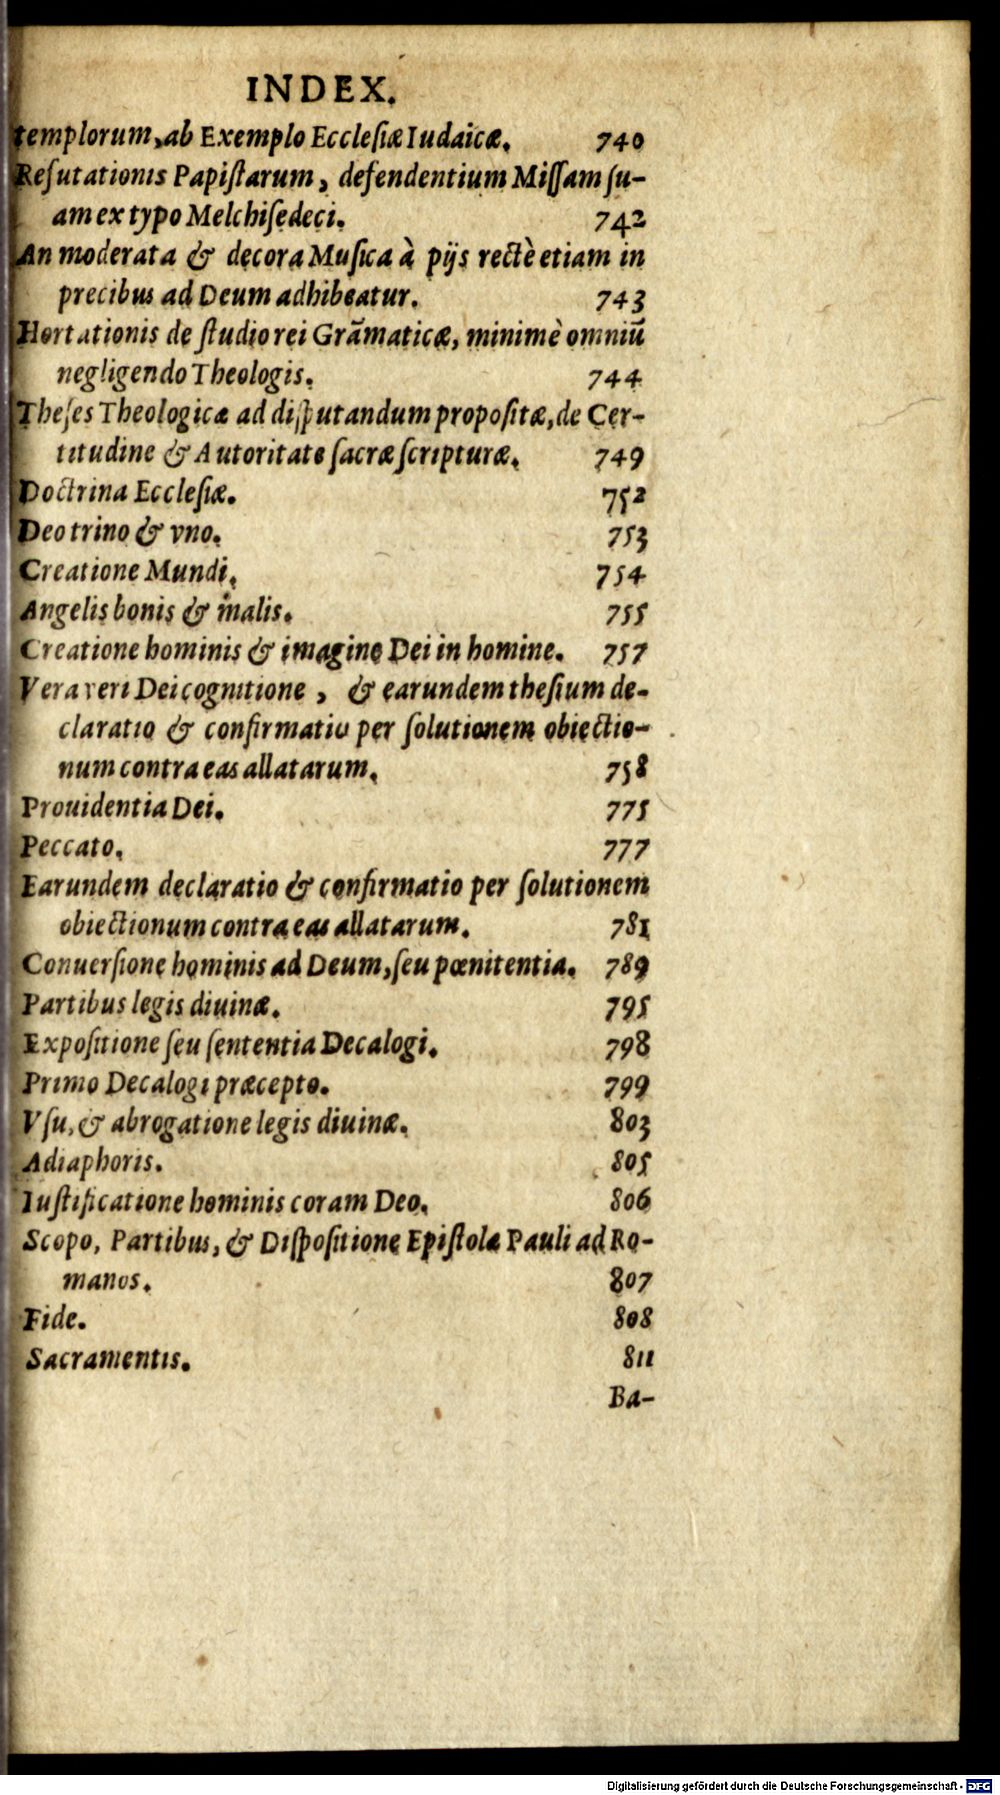 INDEX.
templorum, ab Exemplo Ecclesiæ Iudaicæ. 740
Refutationis Papistarum, defendentium Missam su-
am ex typo Melchisedeci. 742
An moderata & decora Musica à pijs rectè etiam in
precibus ad Deum adhibeatur. 743
Hortationis de studio rei Grãmaticæ, minimè omniũ
negligendo Theologis. 744
Theses Theologicæ ad disputandum propositæ, de Cer-
titudine & Autoritate sacræ scripturæ. 749
Doctrina Ecclesiæ. 752
Deo trino & vno. 753
Creatione Mundi. 754
Angelis bonis & malis. 755
Creatione hominis & imagine Dei in homine. 757
Vera veri Dei cognitione, & earundem thesium de-
claratio & confirmatio per solutionem obiectio-
num contra eas allatarum. 758
Prouidentia Dei. 775
Peccato. 777
Earundem declaratio & confirmatio per solutionem
obiectionum contra eas allatarum. 781
Conuersione hominis ad Deum, seu pœnitentia. 789
Partibus legis diuinæ. 795
Expositione seu sententia Decalogi. 798
Primo Decalogi præcepto. 799
Vsu, & abrogatione legis diuinæ. 803
Adiaphoris. 805
Iustificatione hominis coram Deo. 806
Scopo, Partibus, & Dispositione Epistolæ Pauli ad Ro-
manos. 807
Fide. 808
Sacramentis. 811
Ba-
Digitalisierung gefördert durch die Deutsche Forschungsgemeinschaft - DFG